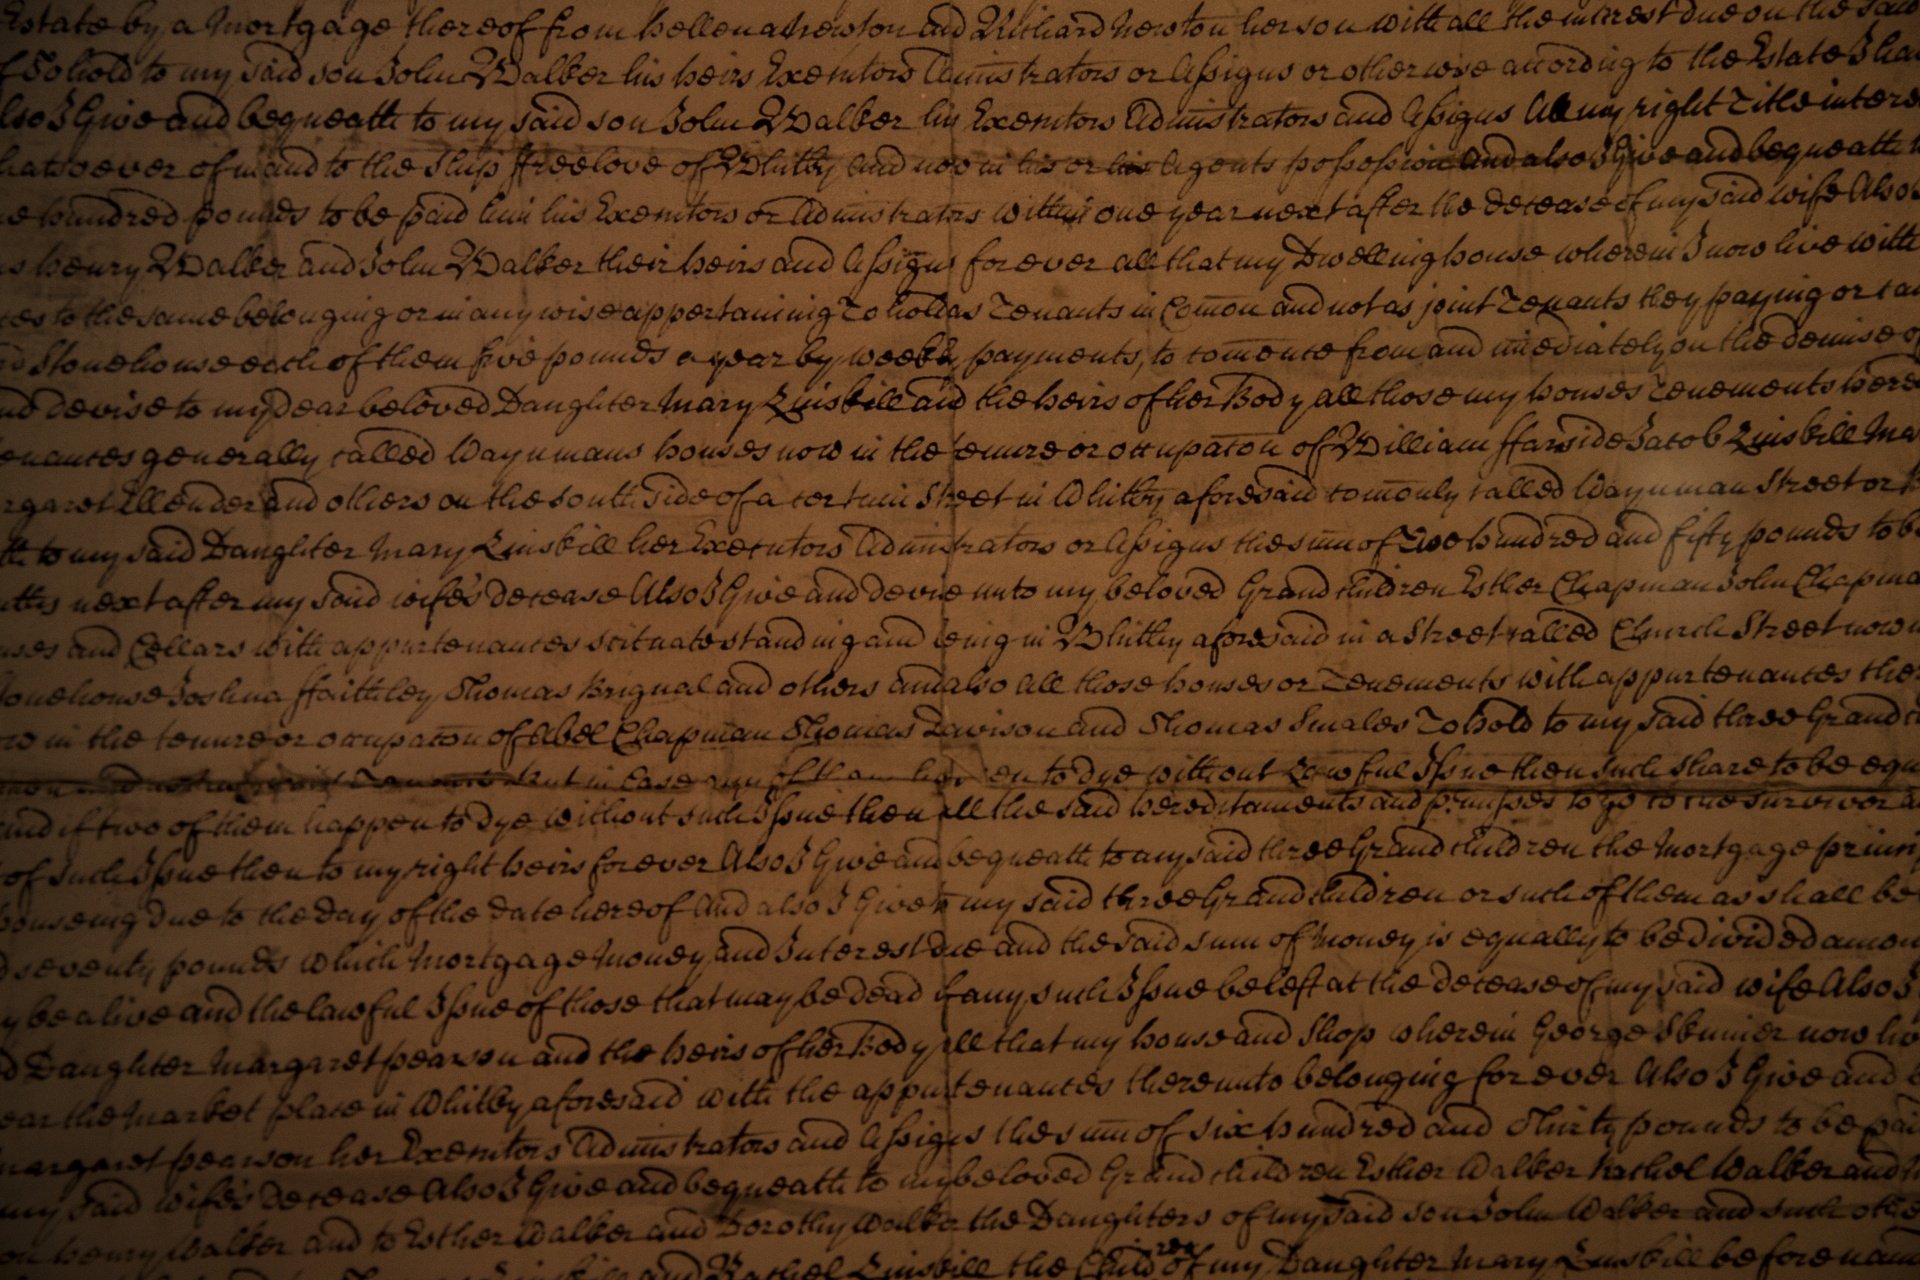 Estate by a Mortgage thereof from hellena Newton and Richard Newton her son with all the interest due on the said
To hold to my said son John Walker his heirs Executors Administrators or Assigns or otherwise according to the Estate I ha
lso I Give and bequeath to my said son John Walker his Executors Administrators and Assigns All my right Title intere
hatsoever of in and to the Ship ffreelove of Whitby and now in his or his Agents possession And also I Give and bequeath
e hundred pounds to be paid him his Executors or Administrators within one year next after the decease of my said wife Also
s henry Walker and John Walker their heirs and Assigns for ever all that my Dwelling house wherein I now live with
ces to the same belonging or in any wise appertaining To hold as Tenants in Comon and not as joint Tenants they paying or
Stonehouse each of them five pounds a year by weekly payments, to comence from and imediately on the demise of
nd devise to my dear beloved Daughter Mary Linskill and the heirs of her Body all those my houses Tenements here
enances generally called Waynmans houses now in the tenure or occupacon of William ffarside Jacob Linskill Ma
rgaret Ellender and others on the south side of a certain Street in Whitby aforesaid comonly called Waynman Street or
th to my said Daughter Mary Linskill her Executors Administrators or Assigns the sum of Two hundred and fifty pounds to be
nths next after my said wife's decease Also I Give and devise unto my beloved Grand children Esther Chapman John Chapma
uses and Cellars with appurtenances scituate standing and being in Whitby aforesaid in a Street called Church Street now
tonehouse Joshua ffaithley Thomas Brignal and others and also All those houses or Tenements with appurtenances the
ow in the tenure or occupacon of Abel Chapman Thomas Davison and Thomas Smales To hold to my said three Grand
mon and not as joint Tenants but in Case any of them happen to dye without Lawful Issue then such share to be equ
and if two of them happen to dye without such Issue then all the said hereditaments and p'misses to go to the survivor
of such Issue then to my right heirs for ever Also I Give and bequeath to my said three Grand children the Mortgage princi
houseing due to the day of the date hereof And also I Give to my said three Grand children or such of them as shall be
d seventy pounds which Mortgage Money and Interest due and the said sum of money is equally to be divided amon
y be alive and the lawful Issue of those that may be dead if any such Issue be left at the decease of my said wife Also I
d Daughter Margaret pearson and the heirs of her Body all that my house and Shop wherein George Skinner now
ear the Market place in Whitby aforesaid with the appurtenances thereunto belonging for ever Also I Give and
Margaret pearson her Executors Administrators and Assigns the sum of six hundred and Thirty pounds to be paid
my said wife's decease Also I Give and bequeath to my beloved Grand children Esther Walker Rachel Walker and
on henry Walker and to Esther Walker and Dorothy Walker the Daughters of my said son John Walker and such othe
and Rachel Linskill the Children of my Daughter Mary Linskill before nam